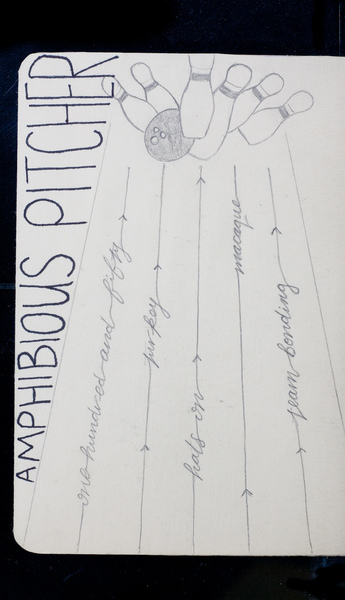 AMPHIBIOUS PITCHER
one hundred and fifty
turkey
hats on
macaque
team bonding